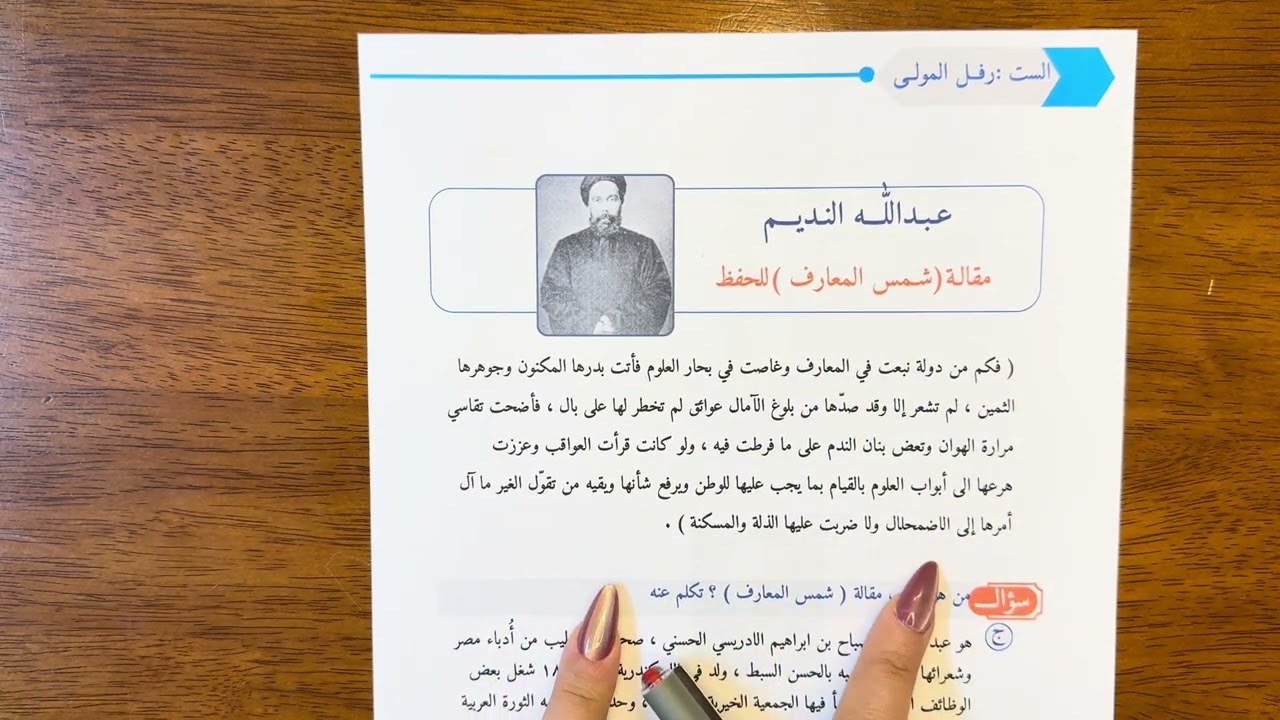 الست :رفل المولى
عبدالله النديم
مقالة (شمس المعارف )للحفظ
( فكم من دولة نبعت في المعارف وغاصت في بحار العلوم فأتت بدرها المكنون وجوهرها
الثمين ، لم تشعر إلا وقد صدّها من بلوغ الآمال عوائق لم تخطر لها على بال ، فأضحت تقاسي
مرارة الهوان وتعض بنان الندم على ما فرطت فيه ، ولو كانت قرأت العواقب وعززت
هرعها الى أبواب العلوم بالقيام بما يجب عليها للوطن ويرفع شأنها ويقيه من تقوّل الغير ما آل
أمرها إلى الاضمحلال ولا ضربت عليها الذلة والمسكنة ) .
سؤال
من مقالة ( شمس المعارف ) ؟ تكلم عنه
ج
هو بن ابراهيم الادريسي الحسني ، من أُدباء مصر
وشعرائها بالحسن السبط ، ولد في شغل بعض
الوظائف فيها الجمعية الخيرية الثورة العربية